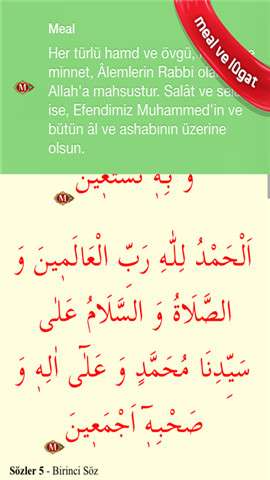 meal ve lûgat
Meal
Her türlü hamd ve övgü,
minnet, Âlemlerin Rabbi
Allah'a mahsustur. Salât ve
ise, Efendimiz Muhammed'in ve
bütün âl ve ashabının üzerine
olsun.
M
وَ بِهٖ نَسْتَعٖينُ
M
اَلْحَمْدُ لِلّٰهِ رَبِّ الْعَالَمٖينَ وَ
الصَّلَاةُ وَ السَّلَامُ عَلٰى
سَيِّدِنَا مُحَمَّدٍ وَ عَلٰٓى اٰلِهٖ وَ
صَحْبِهٖٓ اَجْمَعٖينَ
M
Sözler 5 - Birinci Söz